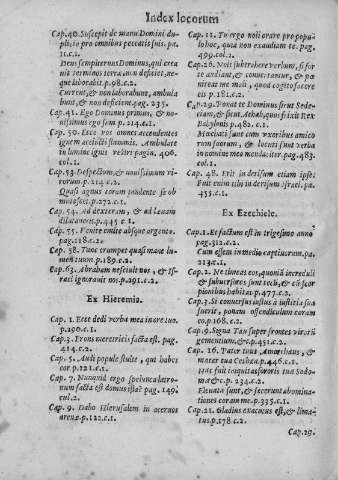 Index locorum
Cap. 40. Suscepit de manu Domini du-
plicia pro omnibus peccatis suis. pa.
11. c.1.
Deus sempiternus Dominus, qui crea
uit terminos terræ, non deficiet, ne-
que laborabit. p.98. c.2.
Current, & non laborabunt, ambula
bunt, & non deficient. pag. 235.
Cap. 41. Ego Dominus primus, & no-
uissimus ego sum p. 214. c.1.
Cap. 50. Ecce vos omnes accendentes
ignem accincti flammis. Ambulate
in lumine ignis vestri pagin. 406.
col. 1.
Cap. 53. Despectum, & nouissimum vi-
rorum. p. 214. c.2.
Quasi agnus coram tondente se ob
mutescet. p. 272. c.1.
Cap. 54. Ad dexteram, & ad leuam
dilataueris. p. 445. c.1.
Cap. 55. Venite emite absque argento.
pag. 118. c.2.
Cap. 58. Tunc erumpet quasi mane lu-
men tuum. p. 189. c.2.
Cap. 63. Abraham nesciuit nos, & Is-
rael ignorauit nos. p. 291. c.2.
Ex Hieremia.
Cap. 1. Ecce dedi verba mea in ore tuo.
p. 190. c.1.
Cap. 3. Frons meretricis facta est. pag.
414. c.2.
Cap. 5. Audi popule stulte, qui habes
cor p. 121. c.1.
Cap. 7. Nunquid ergo spelunca latro-
num facta est domus ista? pag. 149.
col. 2.
Cap. 9. Dabo Hierusalem in aceruos
arenæ. p. 122. c.1.
Cap. 11. Tu ergo noli orare pro popu-
lo hoc, quia non exaudiam te. pag.
499. col. 1.
Cap. 26. Noli subtrahere verbum, si for
te audiant, & conuertantur, & pœ-
niteat me mali, quod cogito facere
eis p. 181. c.2.
Cap. 29. Ponat te Dominus sicut Sede-
ciam, & sicut Achab, quos frixit Rex
Babylonis p. 482. c.1.
Mœchati sunt cum vxoribus amico
rum suorum, & locuti sunt verba
in nomine meo mendaciter. pag. 483.
col. 1.
Cap. 48. Erit in derisum etiam ipse:
Fuit enim tibi in derisum Israel. pa.
455. c.1.
Ex Ezechiele.
Cap. 1. Et factum est in trigesimo anno
pag. 312. c.2.
Cum essem in medio captiuorum. pa.
213. c.1.
Cap. 2. Ne timeas eos, quoniã increduli
& subuersores sunt tecũ, & cũ scor
pionibus habitas p. 477. c.2.
Cap. 3. Si conuersus iustus à iustitia sua
fuerit, ponam offendiculum coram
eo p. 168. c.2.
Cap. 9. Signa Tau super frontes virorũ
gementium. & c. p. 431. c.2.
Cap. 16. Pater tuus Amorrhæus, &
mater tua Cethæa. p. 446. c.1.
Hæc fuit iniquitas sororis tuæ Sodo-
mæ & c. p. 234. c.2.
Eleuatæ sunt, & fecerunt abomina-
tiones coram me p. 335. c.1.
Cap. 21. Gladius exacutus est, & lima-
tus p. 178. c.2.
Cap. 29.